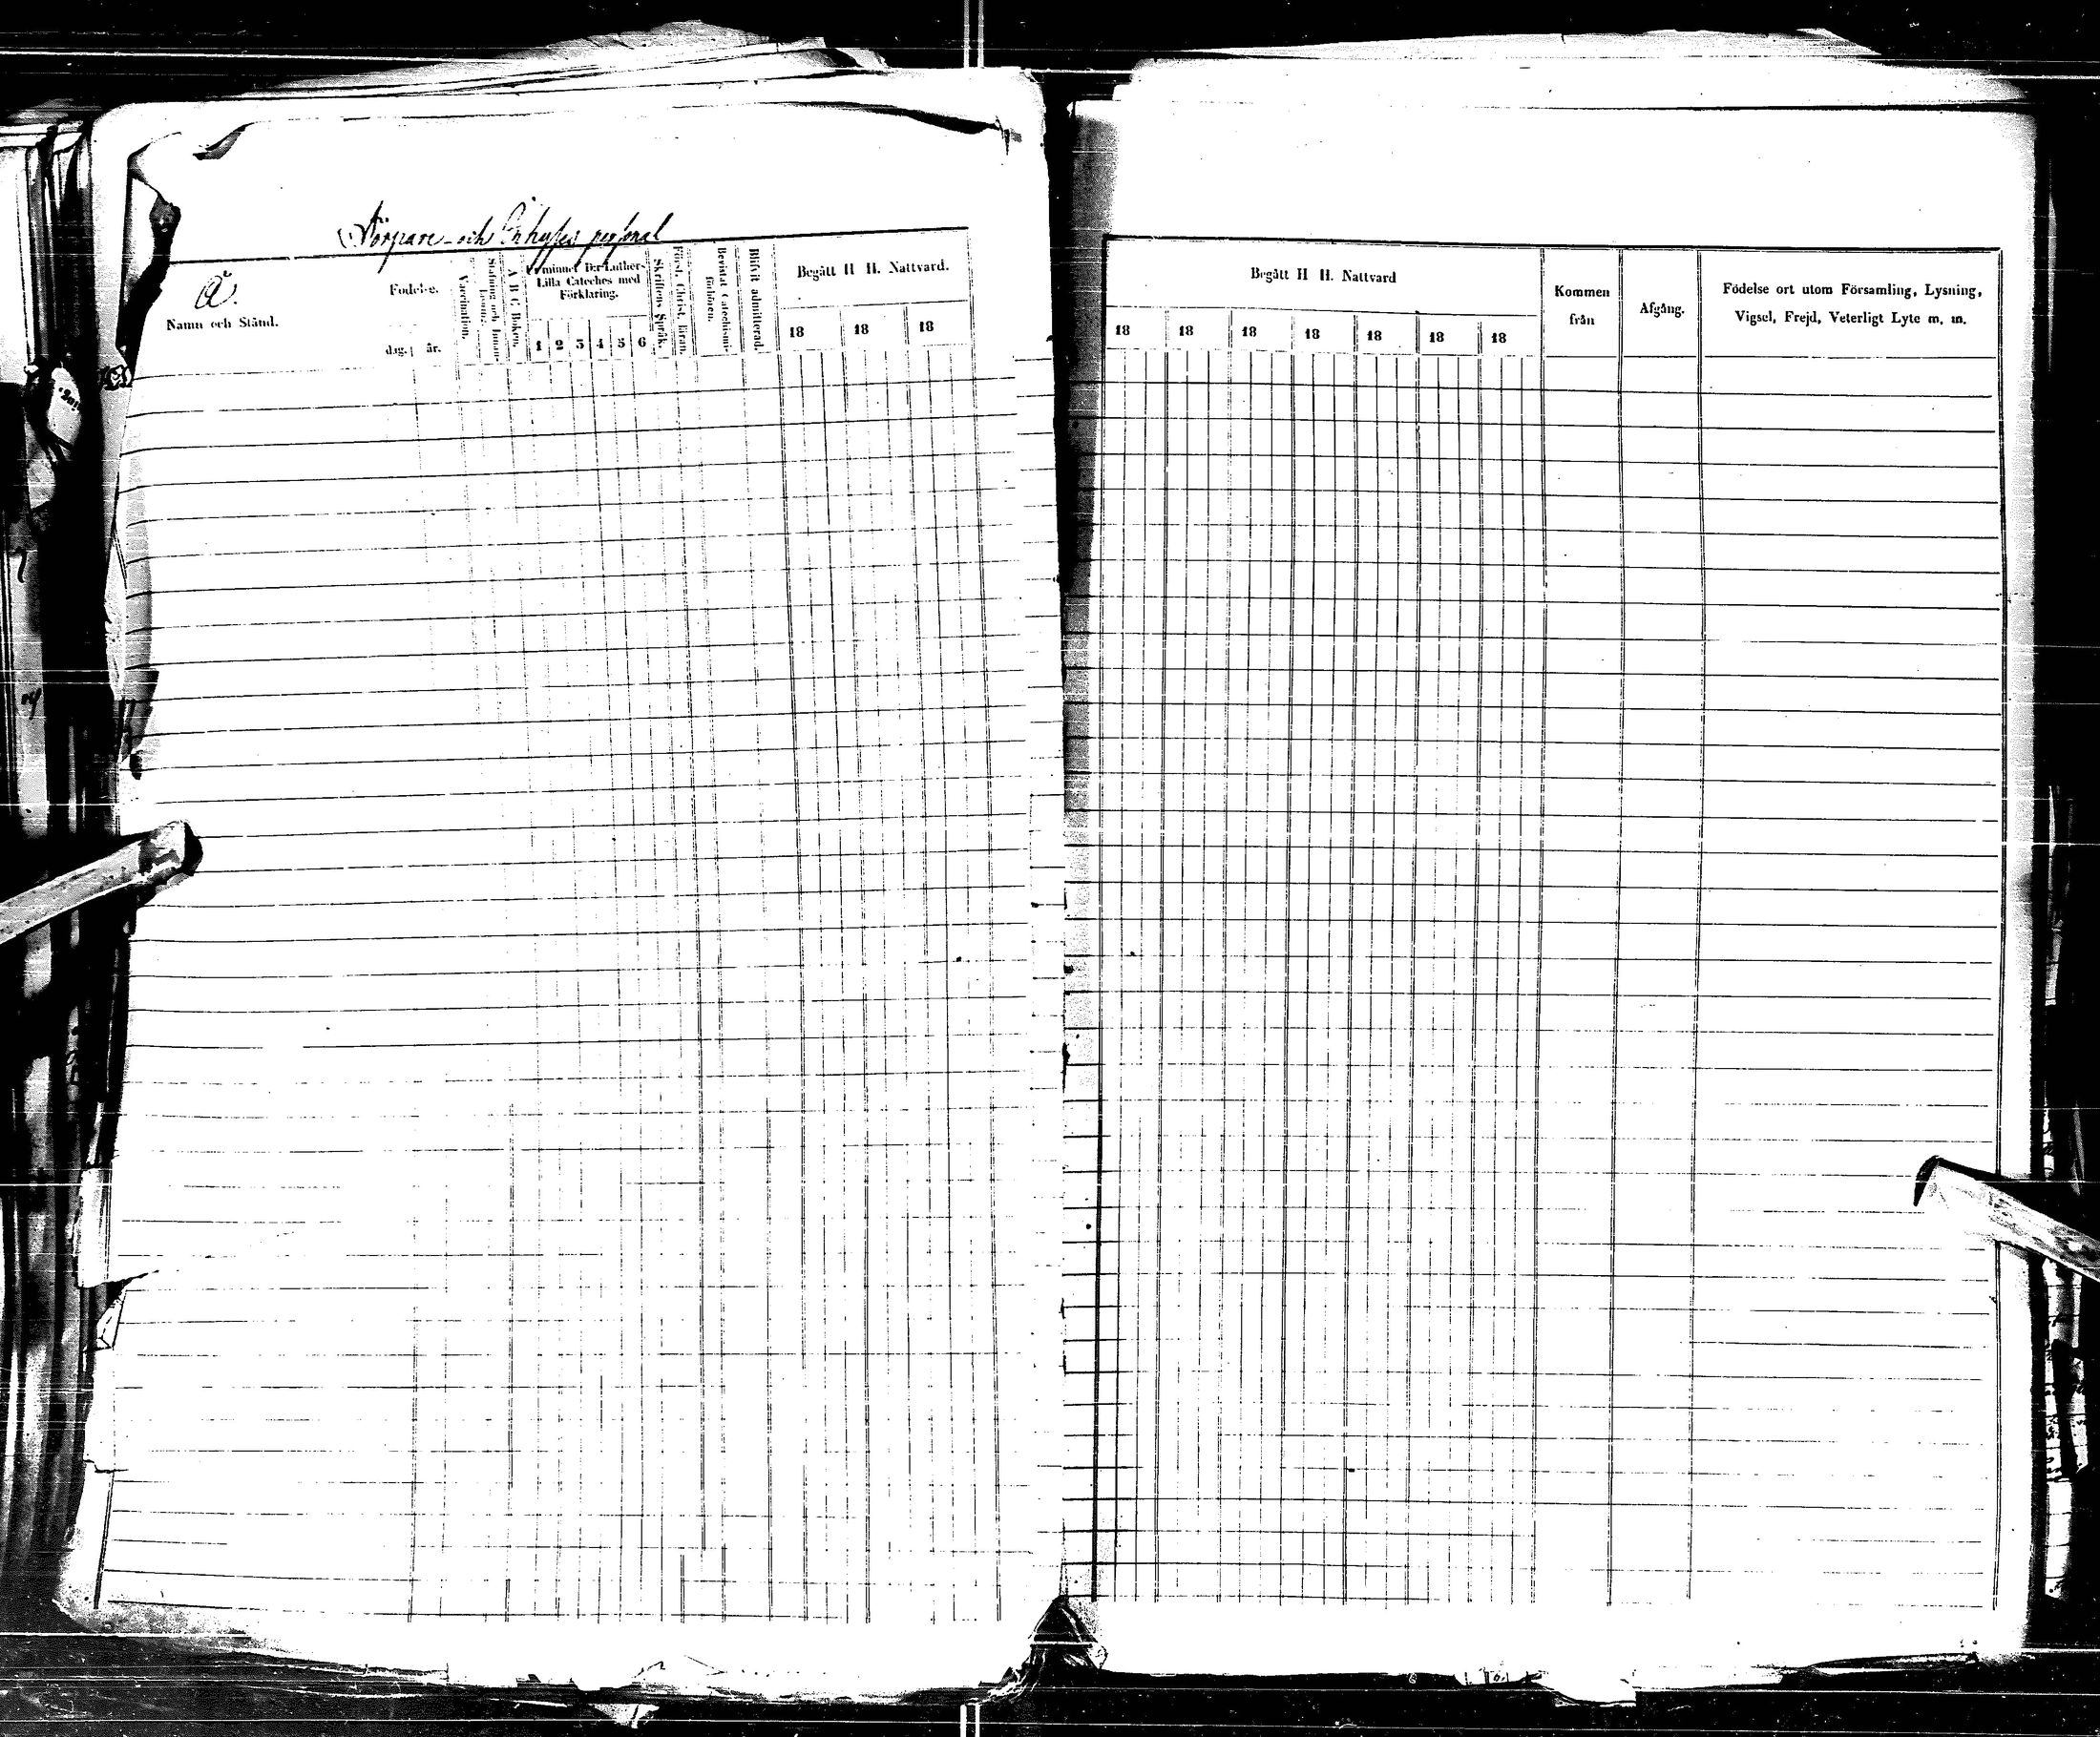 Torpare- och Inhyses personal
Ä.
Namn och Stånd.
Födelse.
dag. år.
Vaccination.
Stafning och Innan-
A B C Boken.
Ur minnet D:r Luthers
Lilla Cateches med
Förklaring.
1 2 3 4 5 6
Skriftens Språk.
Först. Christ. läran.
Bevistat Catechismi-
förhören.
Blifvit admitterad.
Begått H H. Nattvard.
18 18 18
Begått H H. Nattvard
18 18 18 18 18 18 18
Kommen
från
Afgång.
Födelse ort utom Församling, Lysning,
Vigsel, Frejd, Veterligt Lyte m. m.